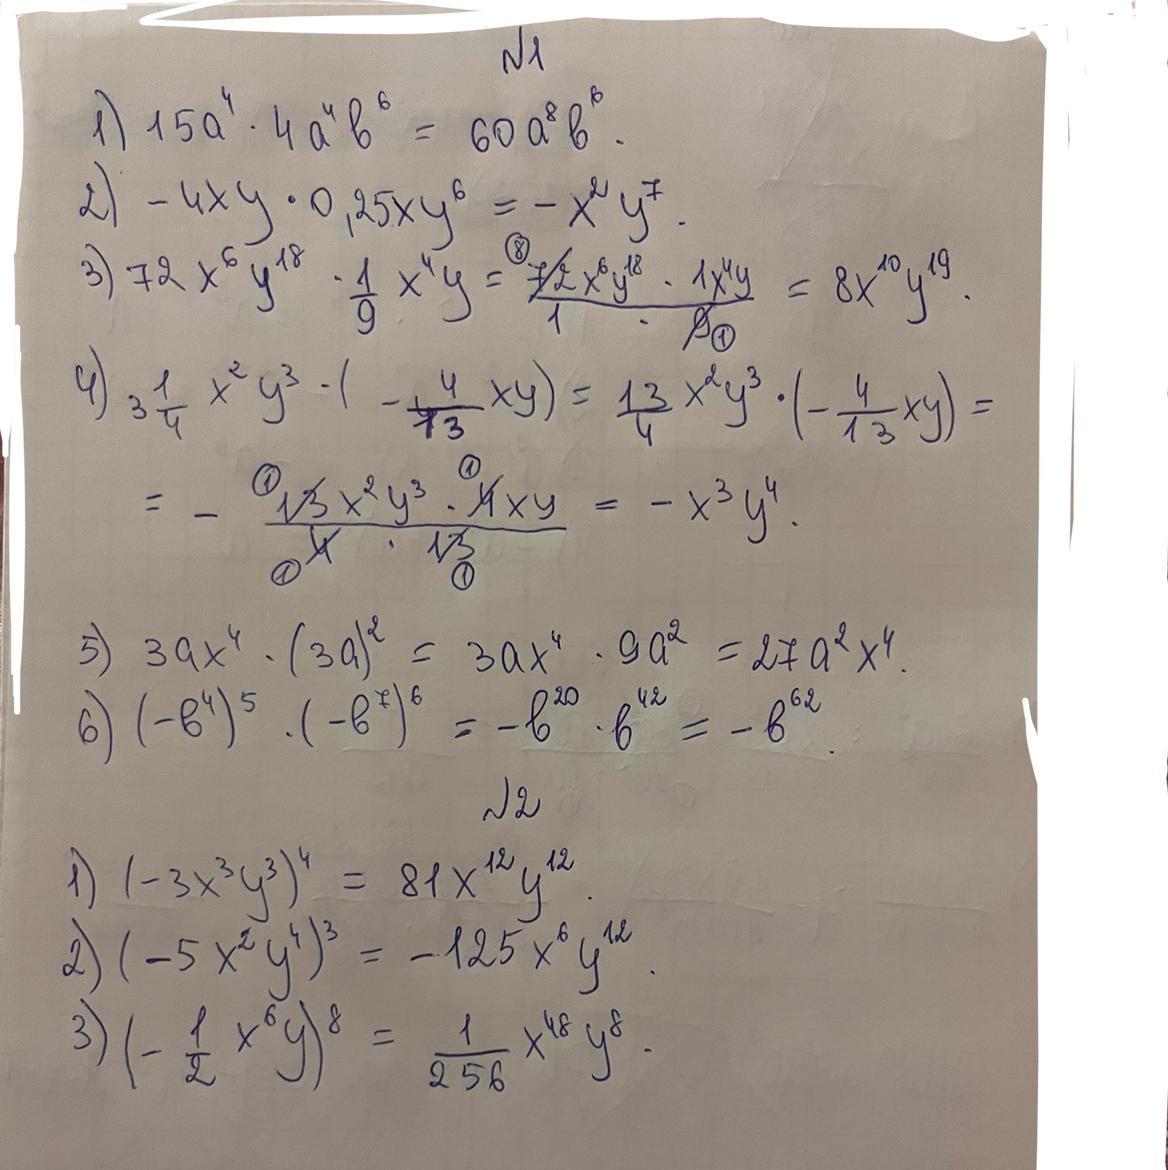 №1
1) 15a⁴ · 4a⁴b⁶ = 60a⁸b⁶.
2) -4xy · 0,25xy⁶ = -x²y⁷.
3) 72x⁶y¹⁸ · 1/9 x⁴y = (72x⁶y¹⁸ · 1x⁴y)/(1 · 9) = 8x¹⁰y¹⁹.
4) 3 1/4 x²y³ · (-4/13 xy) = 13/4 x²y³ · (-4/13 xy) =
= - (13x²y³ · 4xy)/(4 · 13) = -x³y⁴.
5) 3ax⁴ · (3a)² = 3ax⁴ · 9a² = 27a²x⁴.
6) (-b⁴)⁵ · (-b⁷)⁶ = -b²⁰ · b⁴² = -b⁶².
№2
1) (-3x³y³)⁴ = 81x¹²y¹².
2) (-5x²y⁴)³ = -125x⁶y¹².
3) (-1/2 x⁶y)⁸ = 1/256 x⁴⁸y⁸.